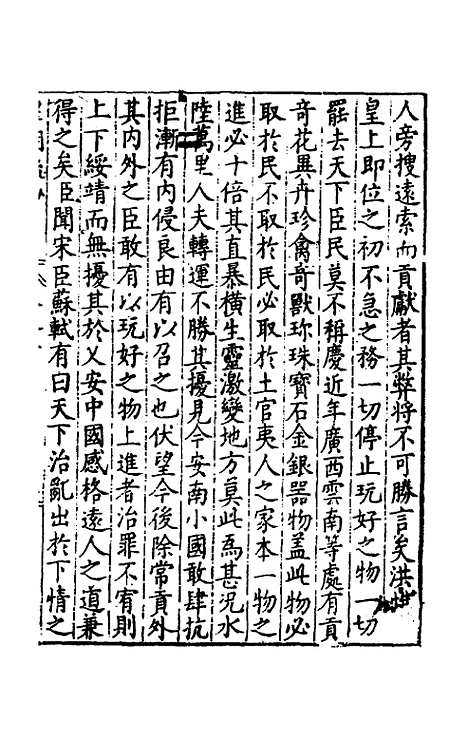 人旁搜遠索而貢獻者其弊將不可勝言矣洪惟
皇上即位之初不急之務一切停止玩好之物一切
罷去天下臣民莫不稱慶近年廣西雲南等處有貢
奇花異卉珍禽奇獸珎珠寶石金銀器物盖此物必
取於民不取於民必取於土官夷人之家本一物之
進必十倍其直暴橫生靈激變地方莫此爲甚况水
陸萬里人夫轉運不勝其擾見今安南小國敢肆抗
拒漸有內侵良由有以召之也伏望今後除常貢外
其內外之臣敢有以玩好之物上進者治罪不宥則
上下綏靖而無擾其於乂安中國感格遠人之道兼
得之矣臣聞宋臣蘇軾有曰天下治亂出於下情之